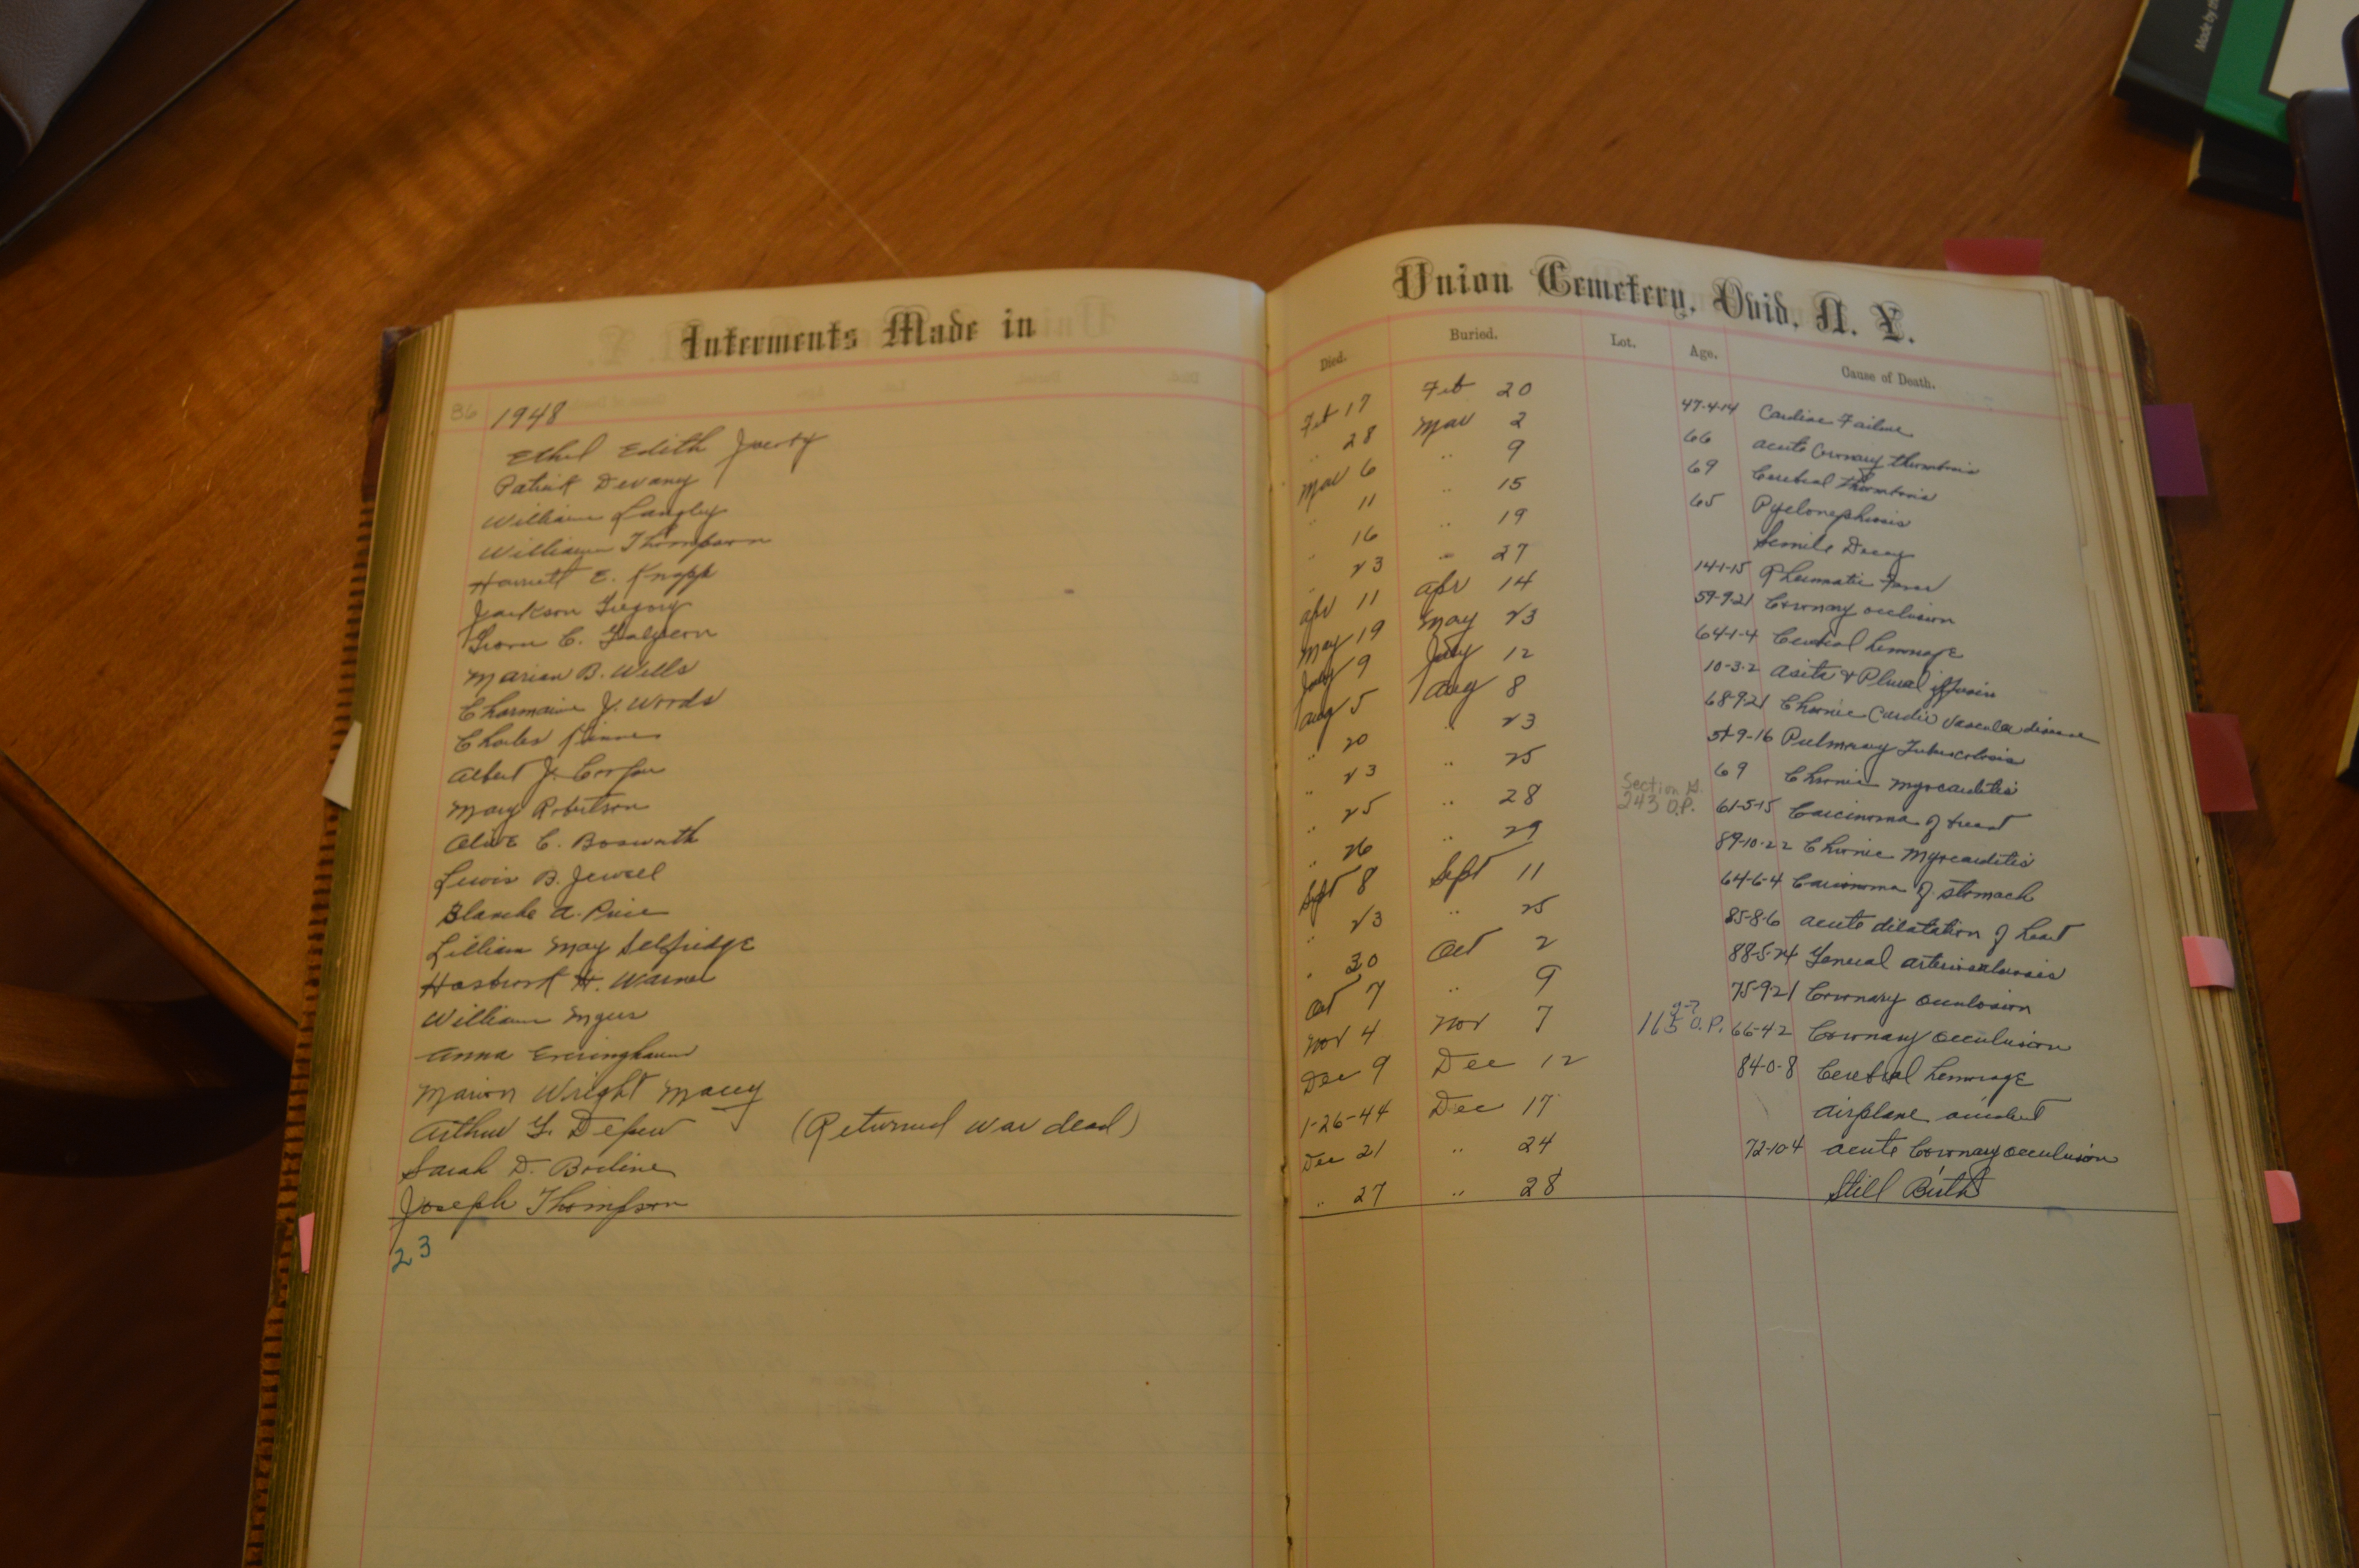 Made by th
Interments Made in
Union Cemetery, Ovid, N. Y.
Died. Buried. Lot. Age. Cause of Death.
36 1948
Ethel Edith Feb 17 Feb 20 47-4-14 Cardiac Failure
Patrick Devany .. 28 Mar 2 66 acute Coronary thrombosis
William Langley Mar 6 .. 9 69 Cerebral thrombosis
William Thompson .. 11 .. 15 65
Harriett E. Knapp .. 16 .. 19 Senile Decay
Jackson Gregory .. 23 .. 27 14-1-15 Rheumatic Fever
C. Apr 11 Apr 14 59-9-21 Coronary occlusion
Marian B. Wells May 19 May 23 64-1-4 Cerebral hemorage
Charmaine J. Woods July 9 July 12 10-3-2
Charles Aug 5 Aug 8 68-9-21 Chronic Cardio Vascular disease
Albert J. 20 .. 23 -9-16 Pulmonary Tuberculosis
Mary Robertson .. 23 .. 25 69 Chronic Myocarditis
C. Bosworth .. 25 .. 28 Section G. 243 O.P. 61-5-15 Carcinoma of breast
Lewis B. Jewell .. 26 .. 29 89-10-22 Chronic Myocarditis
Blanche A. Sept 8 Sept 11 64-6-4 Carcinoma of stomach
Lillian May Selfridge .. 23 .. 25 85-8-6 acute dilatation of heart
H. Warner .. 30 Oct 2 88-5-24 General arteriosclerosis
William Myers Oct 7 .. 9 75-9-21 Coronary occulosion
Anna Nov 4 Nov 7 O.P. 66-4-2 Coronary occulusion
Marion Wright Macey Dec 9 Dec 12 84-0-8 Cerebral hemorage
Arthur G. Depew (Returned war dead) 1-26-44 Dec 17 airplane accident
Sarah D. Bodine Dec 21 .. 24 72-10-4 acute Coronary occulusion
Joseph Thompson .. 27 .. 28 Still Birth
23